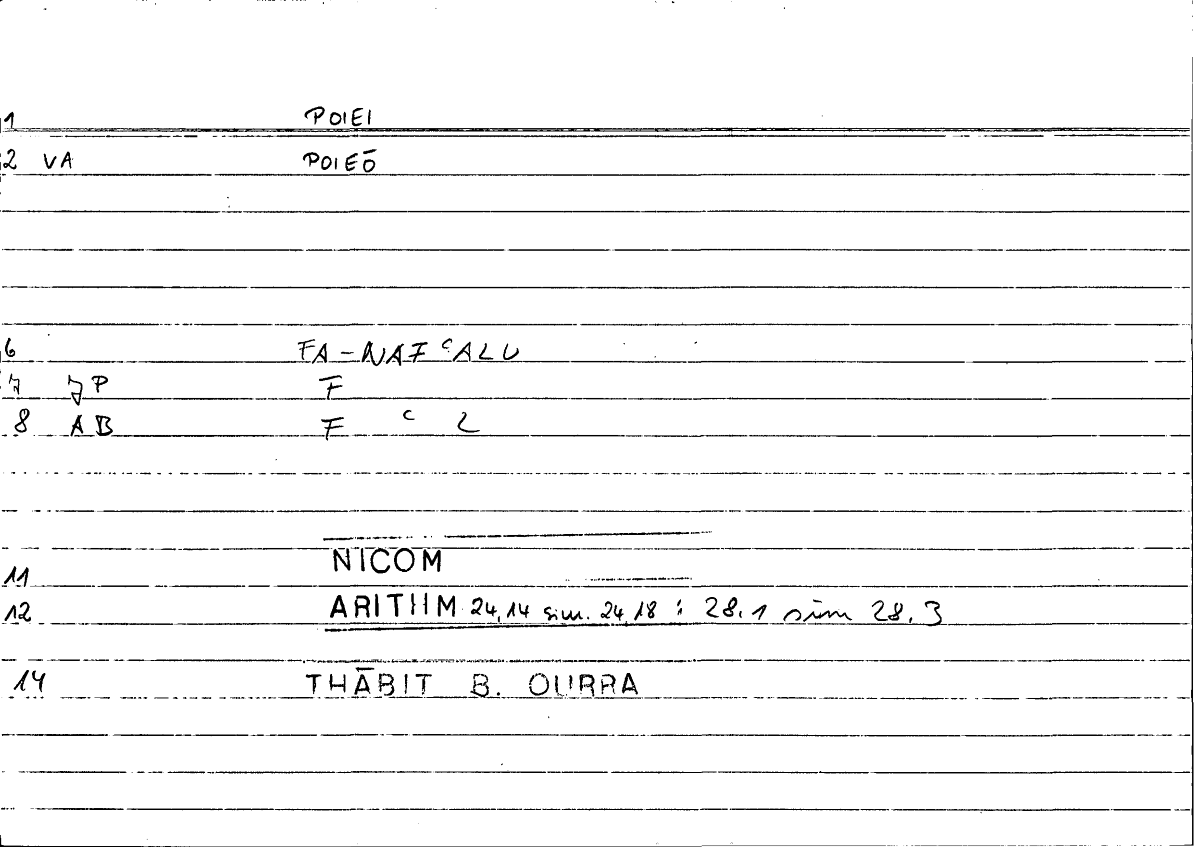 1 POIEI
2 VA POIEŌ
6 FA-NAFᶜALU
7 JP F
8 AB F ᶜ L
11 NICOM
12 ARITHM 24,14 sim. 24,18 ; 28.1 sim 28.3
14 THĀBIT B. QURRA